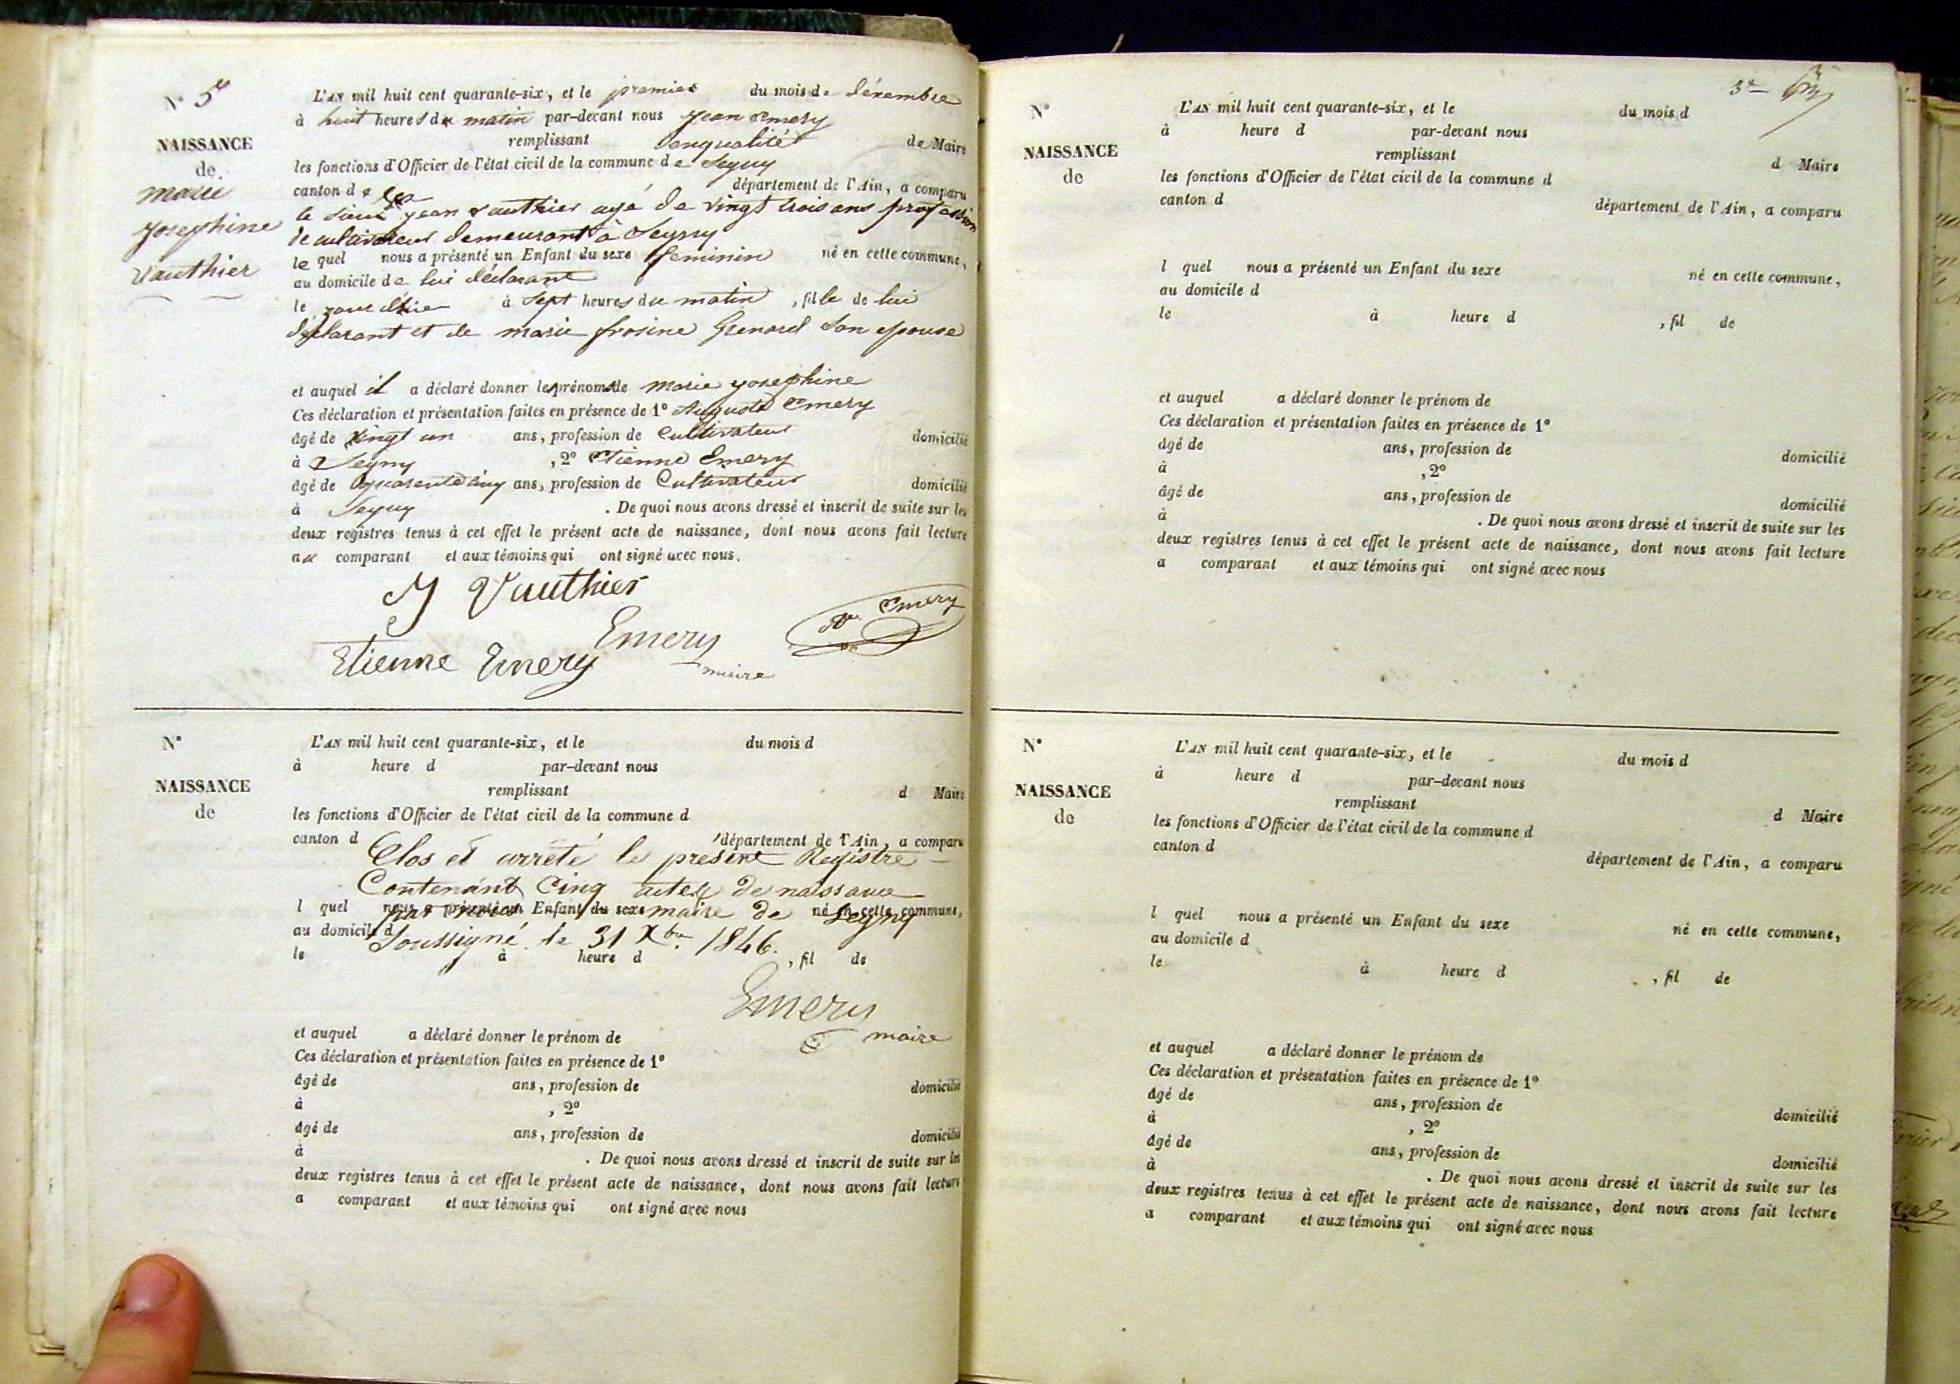 N° 5
NAISSANCE
de
marie
josephine
Vauthier
L'AN mil huit cent quarante-six, et le premier du mois de décembre
à huit heures du matin par-devant nous jean Emery
remplissant enqualité de Maire
les fonctions d'Officier de l'état civil de la commune de Segny
canton de Gex département de l'Ain, a comparu
le sieur jean Vauthier agé de vingt trois ans profession
de cultivateur demeurant à Segny
lequel nous a présenté un Enfant du sexe feminin né en cette commune,
au domicile de lui déclarant
le jour d'hier à sept heures du matin, fille de lui
déclarant et de marie frosine Grenard son epouse
et auquel il a déclaré donner les prénoms de marie josephine
Ces déclaration et présentation faites en présence de 1° Auguste Emery
âgé de vingt un ans, profession de Cultivateur domicilié
à Segny, 2° Etienne Emery
âgé de quarente cinq ans, profession de Cultivateur domicilié
à Segny. De quoi nous avons dressé et inscrit de suite sur les
deux registres tenus à cet effet le présent acte de naissance, dont nous avons fait lecture
au comparant et aux témoins qui ont signé avec nous.
J Vauthier
Emery
Emery
Etienne Emery
maire
N°
NAISSANCE
de
L'AN mil huit cent quarante-six, et le du mois d
à heure d par-devant nous
remplissant d Maire
les fonctions d'Officier de l'état civil de la commune d
canton d département de l'Ain, a comparu
Clos et arrété le présent Registre
Contenant Cinq actes de naissance
l quel nous a présenté un Enfant du sexe né en cette commune,
par nous maire de Segny
au domicile d
Soussigné le 31 Xbre 1846.
le à heure d , fil de
Emery
maire
et auquel a déclaré donner le prénom de
Ces déclaration et présentation faites en présence de 1°
âgé de ans, profession de domicilié
à , 2°
âgé de ans, profession de domicilié
à . De quoi nous avons dressé et inscrit de suite sur les
deux registres tenus à cet effet le présent acte de naissance, dont nous avons fait lecture
a comparant et aux témoins qui ont signé avec nous
N°
NAISSANCE
de
L'AN mil huit cent quarante-six, et le du mois d
à heure d par-devant nous
remplissant d Maire
les fonctions d'Officier de l'état civil de la commune d
canton d département de l'Ain, a comparu
l quel nous a présenté un Enfant du sexe né en cette commune,
au domicile d
le à heure d , fil de
et auquel a déclaré donner le prénom de
Ces déclaration et présentation faites en présence de 1°
âgé de ans, profession de domicilié
à , 2°
âgé de ans, profession de domicilié
à . De quoi nous avons dressé et inscrit de suite sur les
deux registres tenus à cet effet le présent acte de naissance, dont nous avons fait lecture
a comparant et aux témoins qui ont signé avec nous
N°
NAISSANCE
de
L'AN mil huit cent quarante-six, et le du mois d
à heure d par-devant nous
remplissant d Maire
les fonctions d'Officier de l'état civil de la commune d
canton d département de l'Ain, a comparu
l quel nous a présenté un Enfant du sexe né en cette commune,
au domicile d
le à heure d , fil de
et auquel a déclaré donner le prénom de
Ces déclaration et présentation faites en présence de 1°
âgé de ans, profession de domicilié
à , 2°
âgé de ans, profession de domicilié
à . De quoi nous avons dressé et inscrit de suite sur les
deux registres tenus à cet effet le présent acte de naissance, dont nous avons fait lecture
a comparant et aux témoins qui ont signé avec nous